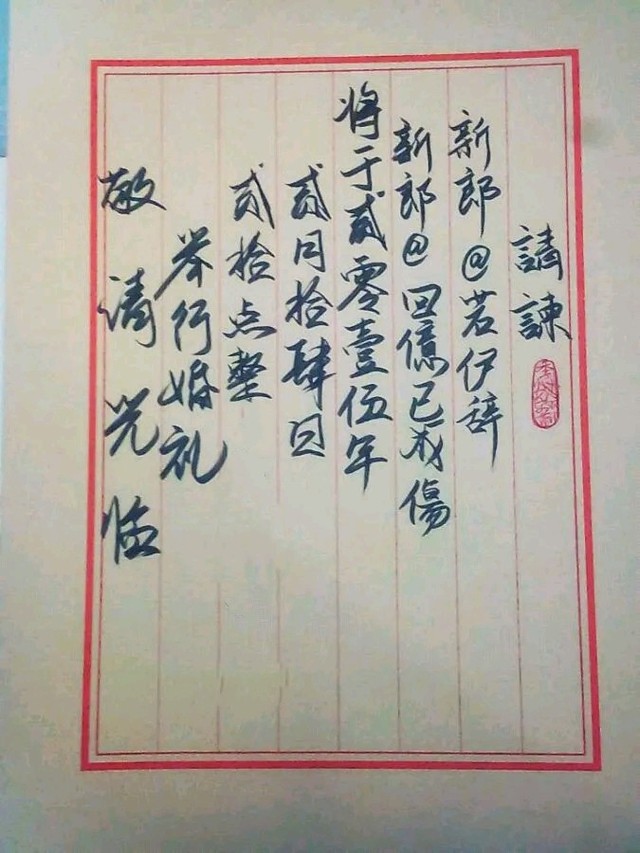 請諫
新郎@若伊辞
新郎@回億已成傷
将于贰零壹伍年
贰月拾肆日
贰拾点整
举行婚礼
敬请光临